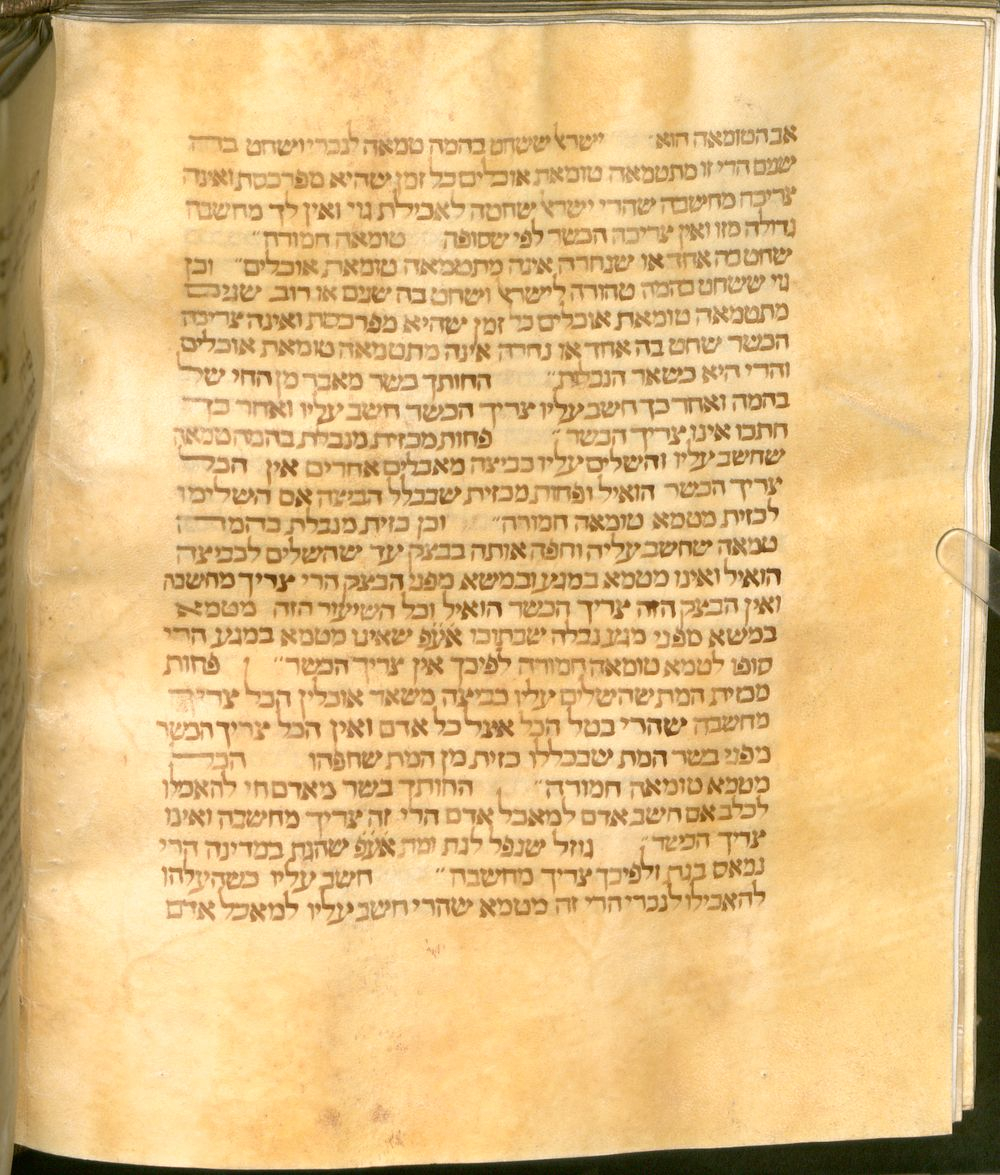 אב הטומאה הוא״ יישר׳ ששחט בהמה טמאה לנכרי ושחט בה
שנים הרי זו מתטמאה טומאת אוכלים כל זמן שהיא מפרכסת ואינה
צריכה מחשבה שהרי יישר׳ שחטה לאכילת גוי ואין לך מחשבה
גדולה מזו ואין צריכה הכשר לפי שסופה טומאה חמורה״
שחט בה אחד או שנחרה אינה מתטמאה טומאת אוכלים״ וכן
גוי ששחט בהמה טהורה לישר׳ ושחט בה שנים או רוב שנים
מתטמאה טומאת אוכלים כל זמן שהיא מפרכסת ואינה צריכה
הכשר שחט בה אחד או נחרה אינה מתטמאה טומאת אוכלים
והרי היא כשאר הנבלות״ החותך בשר מאבר מן החי של
בהמה ואחר כך חשב עליו צריך הכשר חשב עליו ואחר כך
חתכו אינו צריך הכשר״ פחות מכזית מנבלת בהמה טמאה
שחשב עליו והשלים עליו כביצה מאכלים אחרים אין הכל
צריך הכשר הואיל ופחות מכזית שבכלל הביצה אם השלימו
לכזית מטמא טומאה חמורה״ וכן כזית מנבלת בהמה
טמאה שחשב עליה וחפה אותה בבצק עד שהשלים לכביצה
הואיל ואינו מטמא במגע ובמשא מפני הבצק הרי צריך מחשבה
ואין הבצק הזה צריך הכשר הואיל וכל השיעור הזה מטמא
במשא מפני מגע נבלה שבתוכו אע׳פ שאינו מטמא במגע הרי
סופו לטמא טומאה חמורה לפיכך אין צריך הכשר״ פחות
מכזית המת שהשלים עליו כביצה משאר אוכלין הכל צריך
מחשבה שהרי בטל הכל אצל כל אדם ואין הכל צריך הכשר
מפני בשר המת שבכללו כזית מן המת שחפהו הכל
מטמא טומאה חמורה״ החותך בשר מאדם חי להאכלו
לכלב אם חשב אדם למאכל אדם הרי זה צריך מחשבה ואינו
צריך הכשר״ גוזל שנפל לגת ומת אע׳פ שהגת במדינה הרי
נמאס בגת ולפיכך צריך מחשבה״ חשב עליו כשהעלהו
להאכילו לנכרי הרי זה מטמא שהרי חשב עליו למאכל אדם